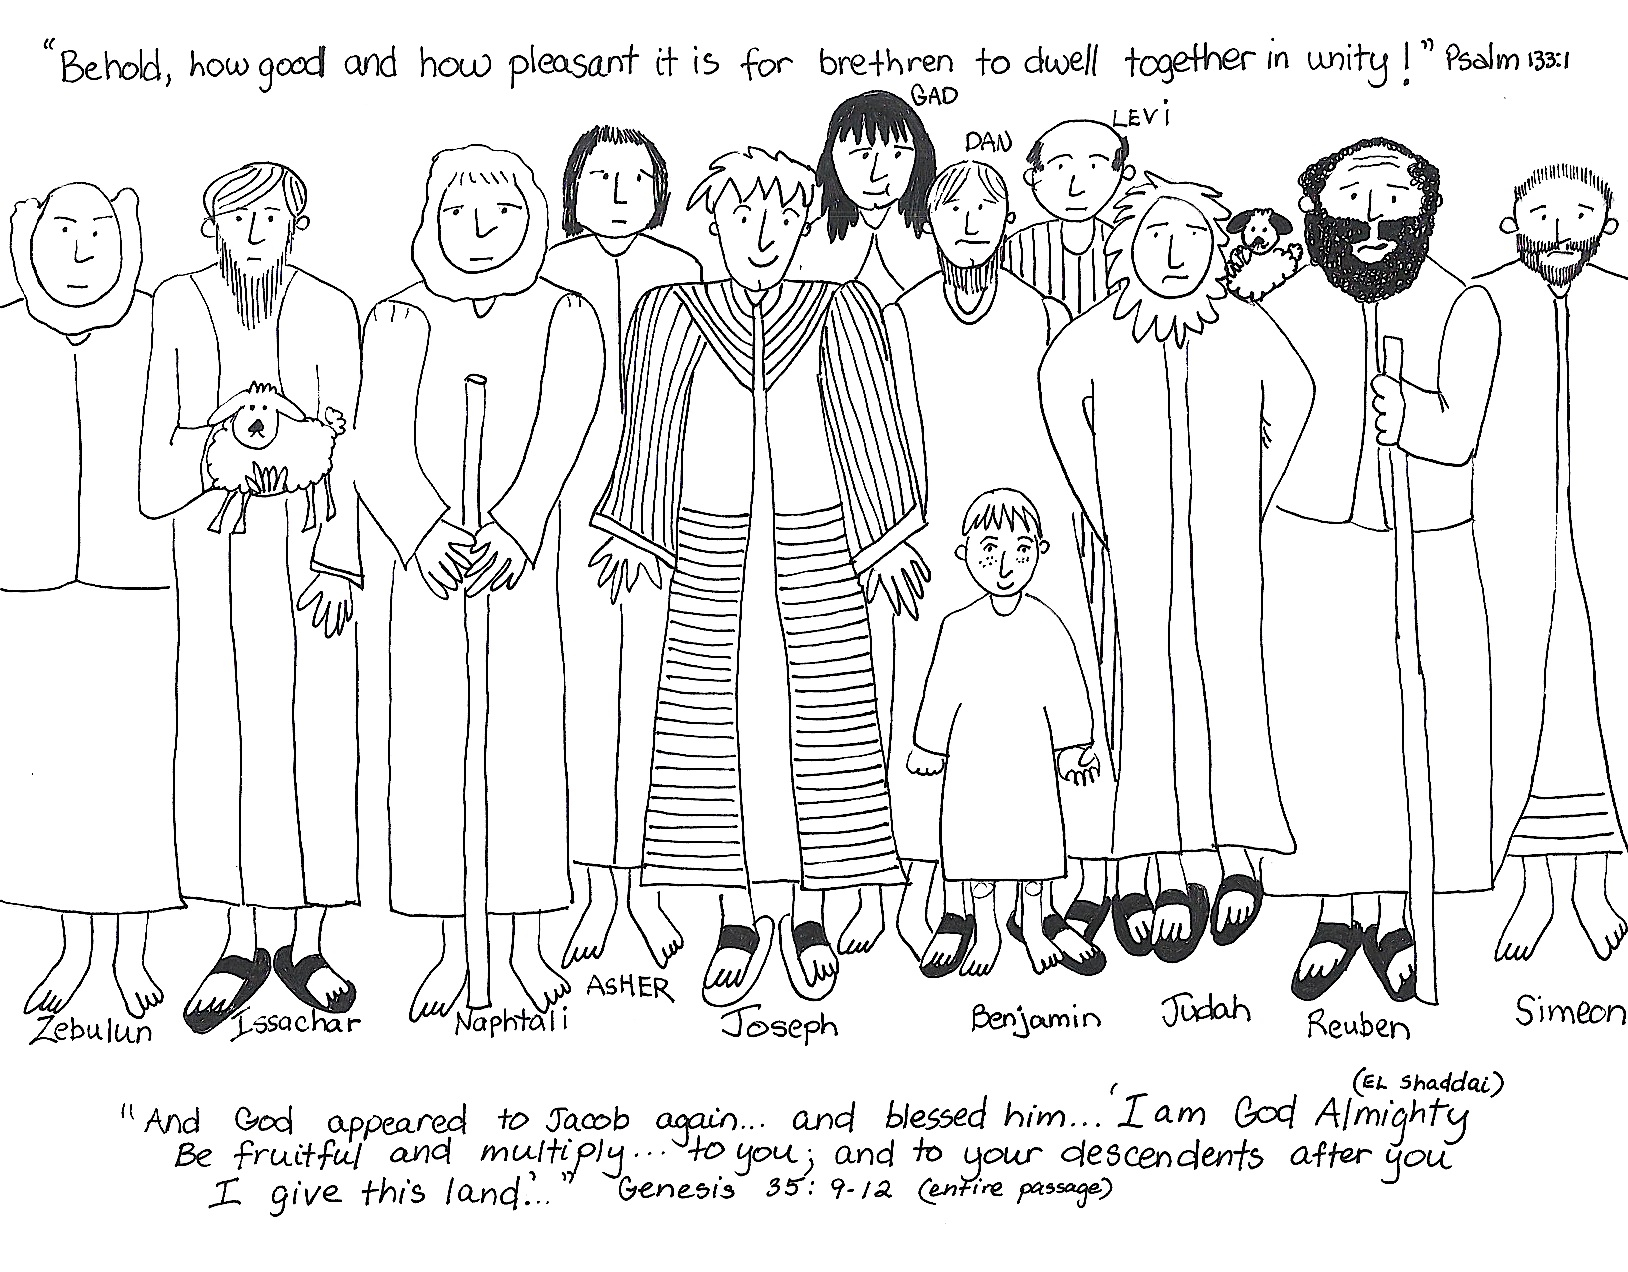 "Behold, how good and how pleasant it is for brethren to dwell together in unity!" Psalm 133:1
GAD
LEVi
DAN
ASHER
Zebulun
Issachar
Naphtali
Joseph
Benjamin
Judah
Reuben
Simeon
(EL Shaddai)
"And God appeared to Jacob again... and blessed him... 'I am God Almighty
Be fruitful and multiply... to you; and to your descendents after you
I give this land.'..." Genesis 35: 9-12 (entire passage)